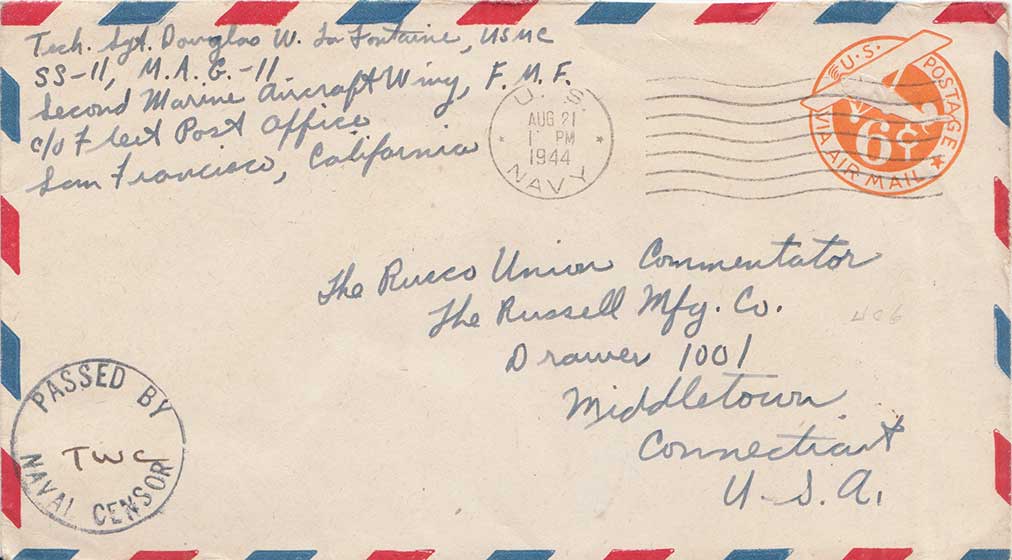 Tech. Sgt. Douglas W. La Fontaine, USMC
SS-11, M.A.G.-11
Second Marine Aircraft Wing, F.M.F.
c/o Fleet Post Office
San Francisco, California
U.S.
AUG 21
PM
1944
NAVY
U.S. POSTAGE
6¢
VIA AIR MAIL
The Rusco Union Commentator
The Russell Mfg. Co.
Drawer 1001
Middletown
Connecticut
U.S.A.
PASSED BY
TWC
NAVAL CENSOR